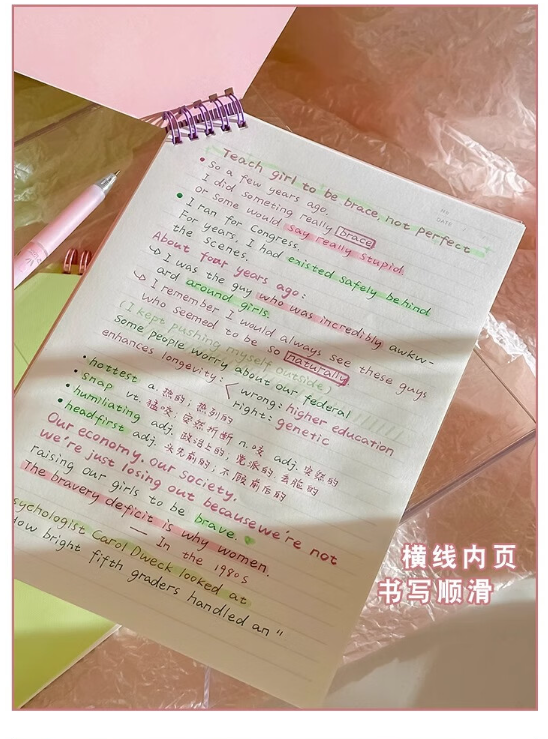 Teach girl to be brace, not perfect
So a few years ago,
I did someting really brace
or some would say really stupid
I ran for congress.
For years, I had existed safely behind
the scenes.
About four years ago:
I was the guy who was incredibly awkw-
ard around girls.
I remember I would always see these guys
who seemed to be so naturally
(I kept pushing myself outside)
Some people worry about our federal
enhances longevity: wrong: higher education
right: genetic
hottest a. 热的; 热列的
snap vt. 猛咬; 突然折断 n. 咬 adj. 突然的
humiliating adj. 政治上的; 党派的
headfirst adj. 头先前的; 不顾前后的
Our economy, our society.
we're just losing out because we're not
raising our girls to be brave.
The bravery deficit is why women.
— In the 1980s
sychologist Carol Dweck looked at
How bright fifth graders handled an "
横线内页
书写顺滑